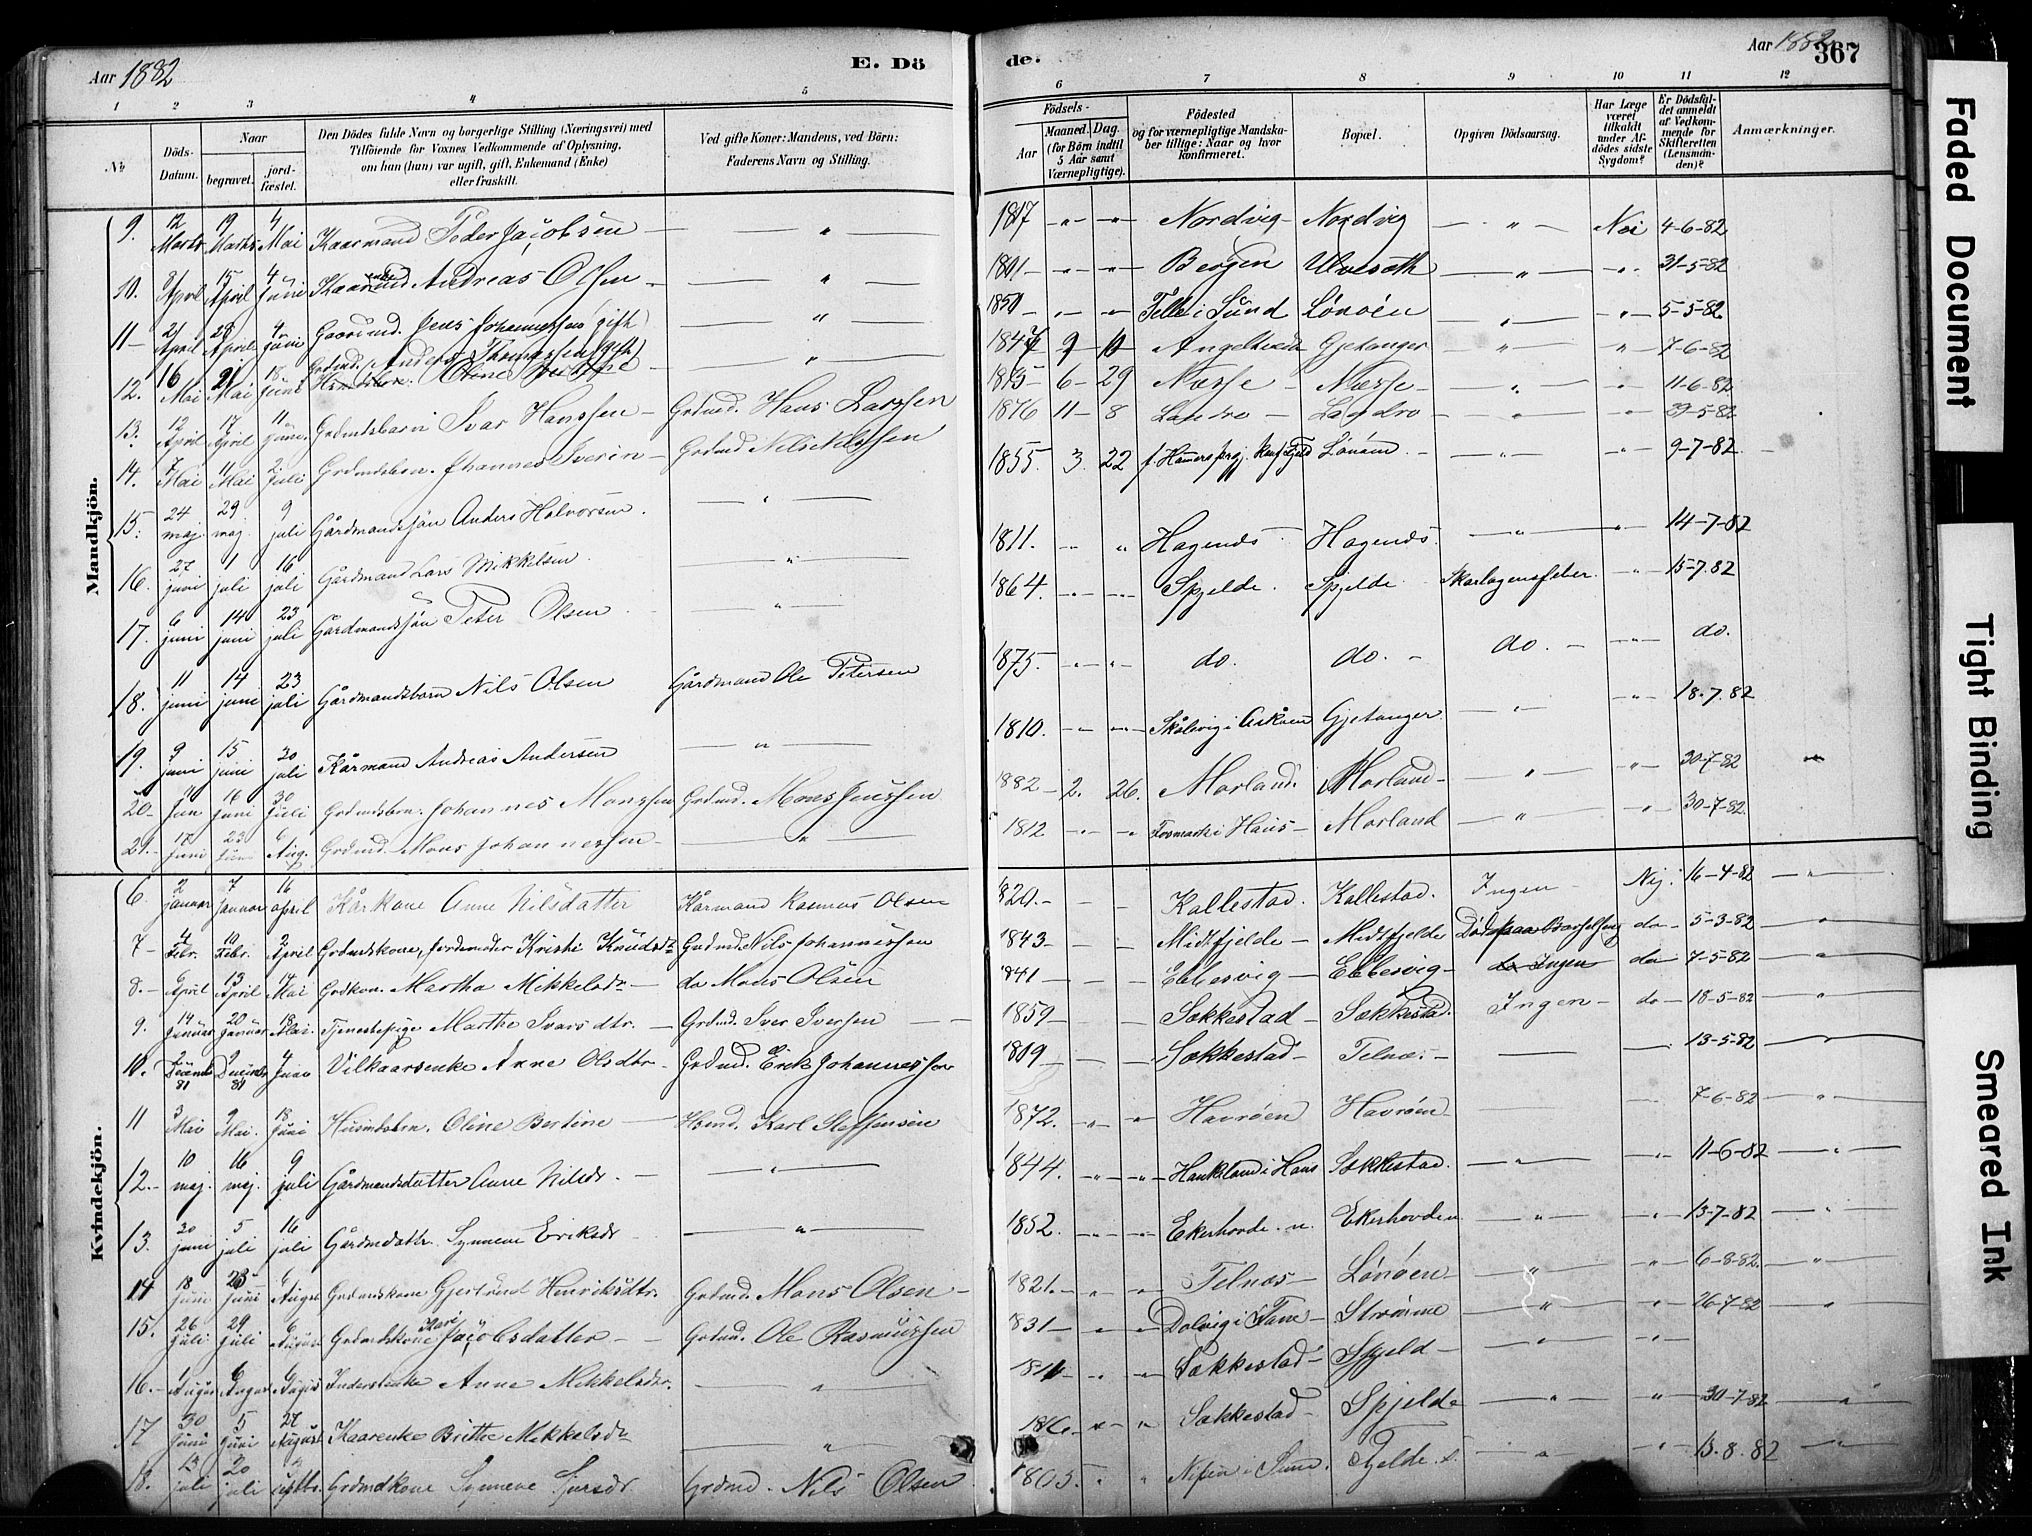 Aar 1882
E. Dö
de.
Aar 1882
367
1 2 3 4 5 6 7 8 9 10 11 12
No
Döds-Datum.
Naar
begravet.
jord-fæstet.
Den Dödes fulde Navn og borgerlige Stilling (Næringsvei) med
Tilföiende for Voxnes Vedkommende af Oplysning,
om han (hun) var ugift, gift, Enkemand (Enke)
eller fraskilt.
Ved gifte Koner: Mandens, ved Börn:
Faderens Navn og Stilling.
Födsels-
Aar
Maaned. Dag.
(for Börn indtil
5 Aar samt
Værnepligtige).
Födested
og for værnepligtige Mandska-
ber tillige: Naar og hvor
konfirmeret.
Bopæl.
Opgiven Dödsaarsag.
Har Læge
været
tilkaldt
under Af-
dödes sidste
Sygdom?
Er Dödsfal-
det anmeldt
af Vedkom-
mende for
Skifteretten
(Lensman-
den)?
Anmærkninger.
Mandkjön.
9. 12 Marts 19 Marts 4 Mai Kaarmand Peder Jacobsen — " — 1817 " " Nordvig Nordvig — " — Nei 4-6-82
10. 8 April 15 April 4 Juni Andreas Olsen — " — 1801 " " Bergen Ulvesæth " " 31-5-82
11 21 April 28 April 4 Juni Jens Johannessen (gift) — " — " " Telle i Sund Lönöen " " 5-5-82
12. 16 Mai 21 Mai 18 Juni Grdmd. Anders Thomassen (gift) — " — Gjetanger " " 7-6-82
Næsse Næsse " " 11-6-82
13. 12 April 17 April 11 Juni Grdmdsbarn Ivar Hanssen Grdmd. Hans Larssen 1876 11 8 Landro Landro " "
14. 7 Mai 11 Mai 2 Juli Grdmdsbrn. Johannes Iverin Grdmd 1855. 3. 22 Lönöen " 9-7-82
15. 24 maj 29 maj 9 juli Gårdmandssön Anders Halvorsen. — " —
16. 27 juni 1 juli 16 juli Gårdmand Lars Mikkelsen — " — 1811. " " Hagenæs Hagenæs — " — " 14-7-82
17. 6 juni 14 juni 23 juli Gårdmandssön Peter Olsen — " — 1864. " " Spjelde. Spjelde. Skarlagensfeber. " 15-7.82
18. 11 juni 14 juni 23 juli Gårdmandsbarn Nils Olsen Gårdmand Ole Petersen 1875. " " do. do. do. " do.
19. 9 juni 15 juni 20 juli Kårmand Andreas Andersen — " — 1810. " " Skålevig i Askøen Gjetanger " " 18.7.82
20. 11 Juni 16 juni 30 Juli Grdmdsbrn. Johannes Monssen Grdmd. Mons Jenssen 1882 2. 26. Morland. Morland " " 30-7-82
21. 17 Juni 23 Juni 6 Aug. Grdmd. Mons Johannessen — " — 1812 " " Fosmark i Haus Morland " " 30-7-82.
Kvindekjön.
6. 2 januar 7 januar 16 april Kårkone Anne Nilsdatter Kårmand Rasmus Olsen 1820. Kallestad. Kallestad. Ingen Nej. 16-4-82 "
7 4 Febr. 10 Febr. 2 April Grdmdskone, Jordemoder Kristi Knudsdr Grdmd. Nils Johannessen 1843 Midtfjelde Midtfjelde Död paa Barselseng do 5-3-82 "
8. 6 April 13 April 14 Mai Grdkon. Martha Mikkelsdr do Mons Olsen 1841 Ebbesvig Ebbesvig Ingen do 7-5-82 "
9. 14 Januar 20 Januar 18 Mai. Tjenestepige Marthe Ivarsdtr. Grdmd. Iver Iversen 1859 Sækkestad Sækkestad. Ingen do 18-5-82 "
10. Decembr 81 9 Decembr 81 4 Juni Vilkaarsenke Anne Olsdtr. Grdmd. Erik Johannessen 1809 Sækkestad Telnæs 13-5-82
11 3 Mai 9 Mai. 18 Juni Husmdsbrn. Oline Bertine Hsmd. Karl Steffensen 1872. " " Havröen Havröen 7-6-82 "
12. 10 maj. 16 maj. 9 juli Gårdmandsdatter Anne Nilsdr. — " — 1844. " " Haukland i Haus Sækkestad. " " 11-6-82
13. 30 juni 5 juli 16 juli Gårdmdsdatr. Synneve Eriksdr — " — 1852. " " Ekerhovde. n. Ekerhovden " " 13-7-82
14 18 Juni 23 Juni 6 August Grdmdskone Gjertrud Henriksdtr. Grdmd. Mons Olsen 1821. " " Telnæs Lönöen " " 6-8-82. "
15. 26 Juli 29 Juli 6 August Grdmdskone Kari Jacobsdatter Grdmd. Ole Rasmussen 1831 " " Dolvig i Fane Strömme " " 26-7-82 "
16. 1 August 6 August 6 August Inderstenke Anne Mikkelsdtr. — " — " " Sækkestad Spjeld "
17 30 Juni 5 Juni 27 August Kaarenke Brithe Mikkelsdr — " — " " Sækkestad Spjelde " " 30-7-82 "
18. 13 juli 20 juli Septbr. Grdmdkone Synneve Sjursdr Grdmd. Nils Olsen 1805 " " i Sund. " " 13.8.82 "
Faded Document
Tight Binding
Smeared Ink